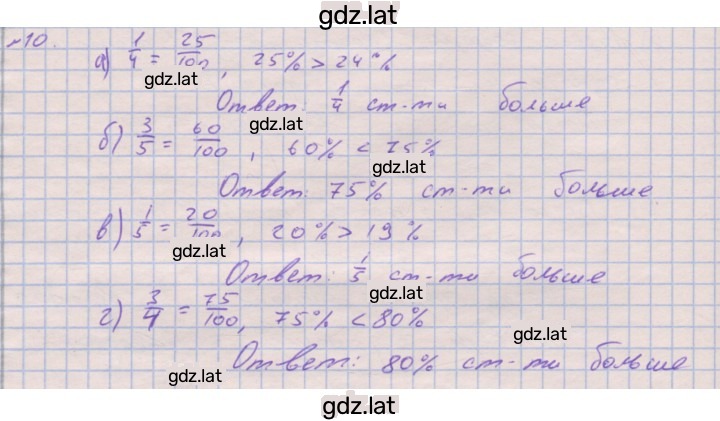 gdz.lat
№10.
а) 1/4 = 25/100, 25% > 24%
gdz.lat
Ответ: 1/4 ст-ти больше
gdz.lat
б) 3/5 = 60/100, 60% < 75%
gdz.lat
Ответ: 75% ст-ти больше.
в) 1/5 = 20/100, 20% > 19%
gdz.lat
Ответ: 1/5 ст-ти больше
gdz.lat
г) 3/4 = 75/100, 75% < 80%
gdz.lat
Ответ: 80% ст-ти больше
gdz.lat
gdz.lat